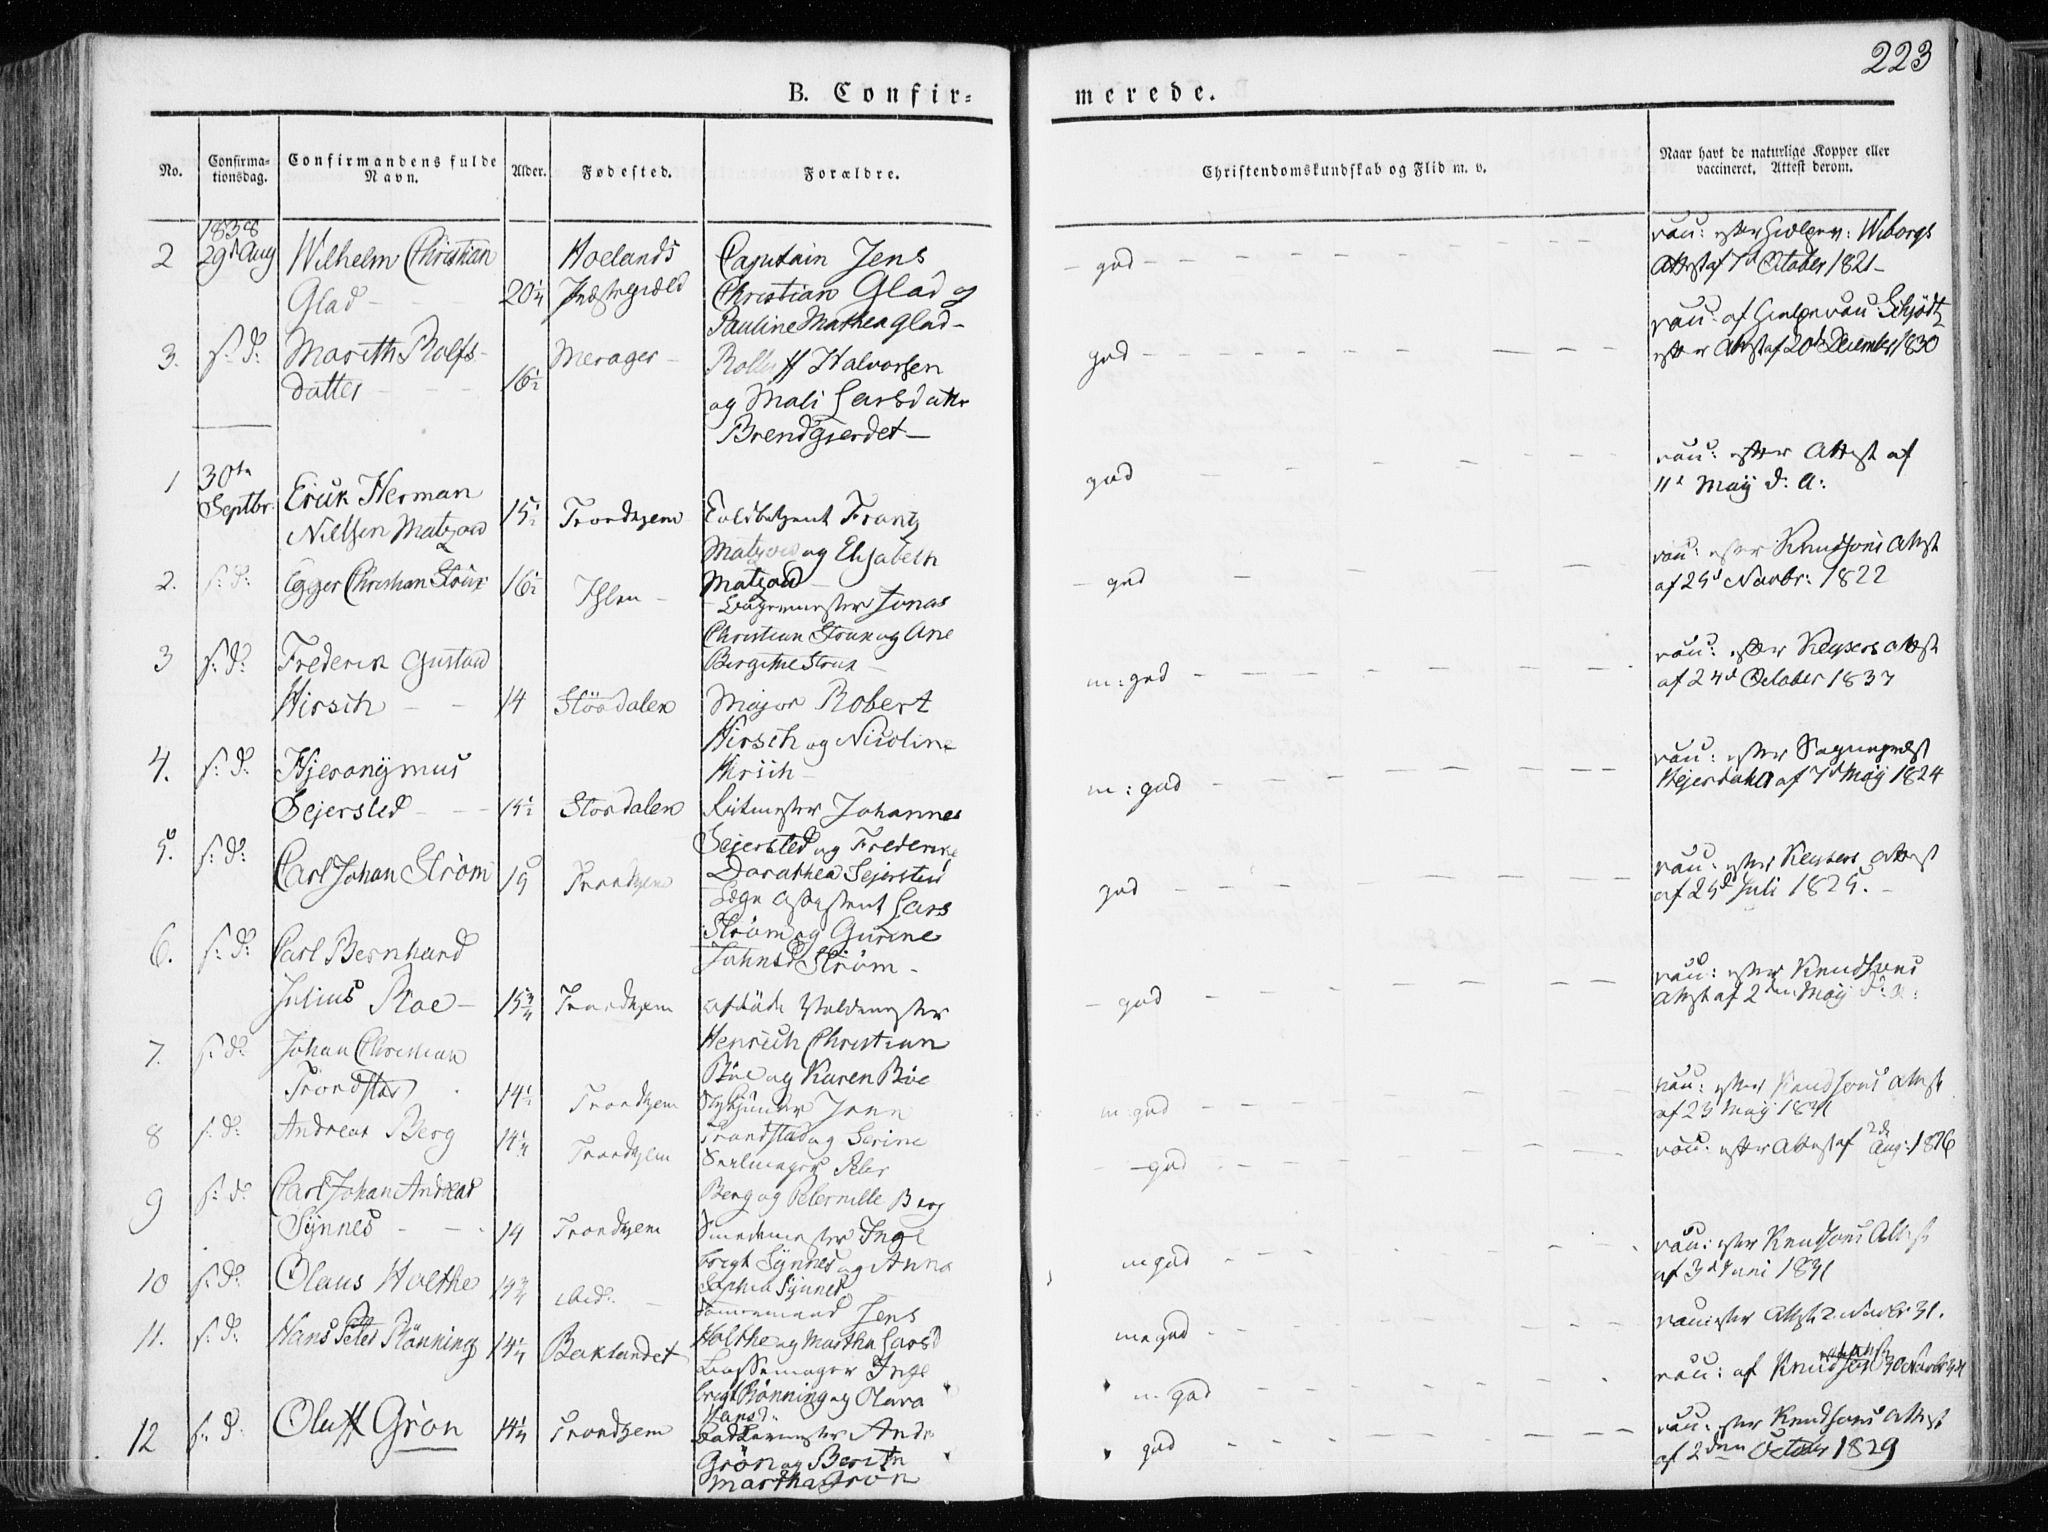 223
B. Confir=
merede.
No.
Confirma-
tionsdag.
Confirmandens fulde
Navn.
Alder.
Fødested.
Forældre.
Christendomskundskab og Flid m. v.
Naar havt de naturlige Kopper eller
vaccineret. Attest derom.
1838
2 29d Aug Wilhelm Christian
Glad 20 1/4 Hoelands
Præstegield
Capitain Jens
Christian Glad og
Pauline Mathea Glad
god
vac: efter Wiborgs
Attest af 7d October 1821
3. s: d: Marith Rolfs
datter 16 1/2 Merager
Halvorsen
og Mali Larsdattr
Brendgjerdet
god
vac: af Schjødtz
efter Attest af 20d December 1830
1 30te
Septbr: Erick Herman
Nilssen Matzow 15 1/2 Trondhjem
Frantz
Matzow og Elisabeth
Matzow
god
vac: efter Attest af
11d Maij d: A:
2. s: d: Christian 16 1/2 Ihlen
Jonas
Christian og Ane
Birgithe
god
vac: efter Knudsons Attest
af 25d Novbr: 1822
3 s: d: Frederik Gustav
Hirsch 14 Størdalen
Major Robert
Hirsch og Nicoline
Hirsch
m: god
vac: efter Keysers Attest
af 24d October 1837
4. s: d: Hjeronÿmus
Sejersted 15 1/2 Stordalen
Ritmester Johannes
Sejersted og Frederike
Dorathea Sejersted
m: god
vac: efter Sognepræst
Hejerdahl af 7d Maij 1824
5. s: d: Carl Johan Strøm 15 Trondhjem
Lars
Strøm og Gurine
Johnsd Strøm
god
vac: efter Keysers Attest
af 25d Juli 1825.
6. s: d: Carl Bernhard
Julius Roe 15 3/4 Trondhjem
Henrich Christian
Roe og Karen Roe
god
vac: efter Knudsons
Attest af 2den Maij d: A:
7. s: d: Johan Christian
Trondstad 14 1/2 Trondhjem
Trondstad og Serine
m: god
vac: efter Knudsons Attest
af 23 Maij 1831
8 s: d: Andreas Berg 14 1/4 Trondhjem
Seilmager Peter
Berg og Peternille Berg
god
vac: efter Attest af 2d Aug: 1826
9 s: d: Carl Johan Andreas
Sÿnnes 14 Trondhjem
Smedemester Inge
brigt Sÿnnes og Anna
Sophia Sÿnnes
m god
vac: efter Knudsons Attest
af 3d Juni 1831
10 s: d: Olaus Holthe 14 3/4 ibid:
Jens
Holthe og Martha Larsd
meg god
vac: efter Attest 2 Novbr 31.
11. s: d: Hans Peter Rønning 14 1/4 Baklandet
Bøssemager Inge
brigt Rønning og Olava
Hansd:
m. god
vac: af Knudson
12 s: d: Oluff Grøn 14 1/4 Trondhjem
Grøn og Berith
Martha Grøn
god
vac: efter Knudsons Attest
af 2den October 1829